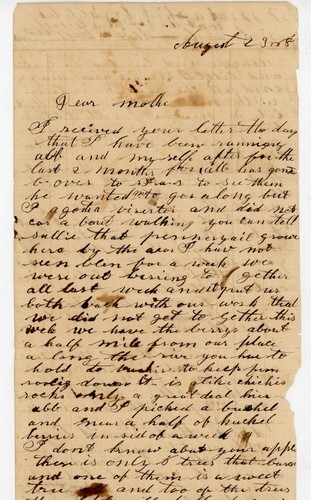 August 23rd
Dear Mothe
I received your letter the day
that I have been running
alb and my self after for the
last 2 months alb has gone
over to to see them
he wanted to go along but
I got a visertor and did not
car a bout walking you can tell
sallie that grows
here by the I have not
seen blen for a week we
were out berring to gether
all last week and it put us
both back with our work that
we did not get to gether this
week we have the berrys about
a half mile from our place
a long the river you have to
hold to bushes to keep from
down it is like chickies
rocks only a great deal
able and I picked a bushel
and near a half of bushel
berries in sid of a week
I don't know about your apple
there is only 8 trees that bares
and one of them is a sweet
tree and too of the trees